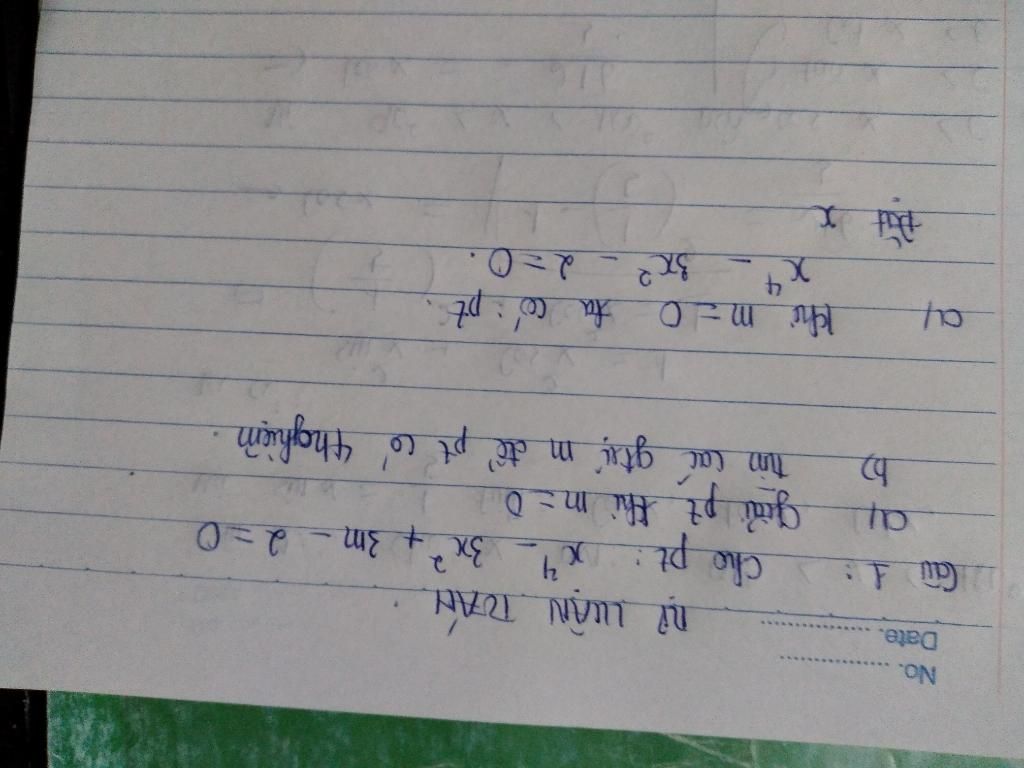 No. ....................
Date. ....................
TỰ LUẬN TOÁN.
Câu 1: Cho pt: x⁴ - 3x² + 3m - 2 = 0
a/ Giải pt khi m = 0
b) tìm các gtrị m để pt có 4 nghiệm.
a/ khi m = 0 ta có: pt.
x⁴ - 3x² - 2 = 0.
Đặt x